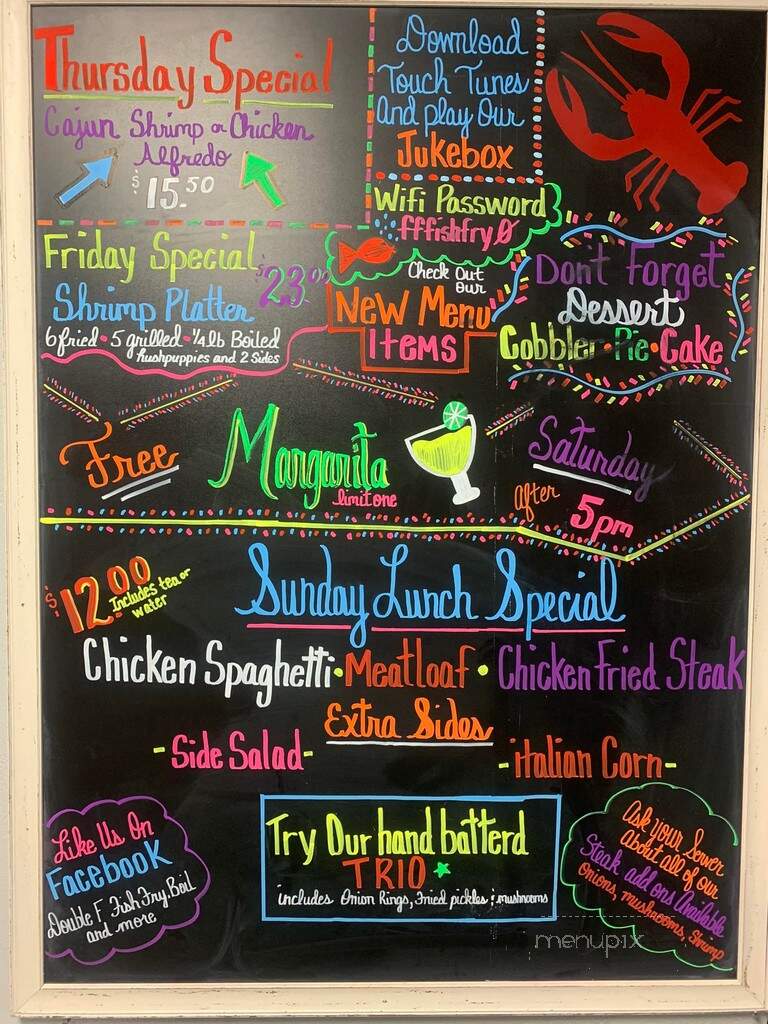 Thursday Special
Cajun Shrimp or Chicken
Alfredo
$15.50
Download
Touch Tunes
And play Our
Jukebox
Wifi Password
fffishfry0
Friday Special
$23.00
Shrimp Platter
6 fried • 5 grilled • 1/4 lb Boiled
hushpuppies and 2 Sides
Check Out
our
New Menu
Items
Dont Forget
Dessert
Cobbler • Pie • Cake
Free
Margarita
limit one
Saturday
After
5pm
$12.00
Includes tea or
water
Sunday Lunch Special
Chicken Spaghetti • Meatloaf • Chicken Fried Steak
Extra Sides
- Side Salad -
- italian Corn -
Like Us On
Facebook
Double F Fish Fry, Boil
and more
Try Our hand batterd
TRIO
includes Onion Rings, Fried pickles & mushrooms
Ask your Server
About all of our
Steak add ons Available
Onions, mushrooms, Shrimp
menupix